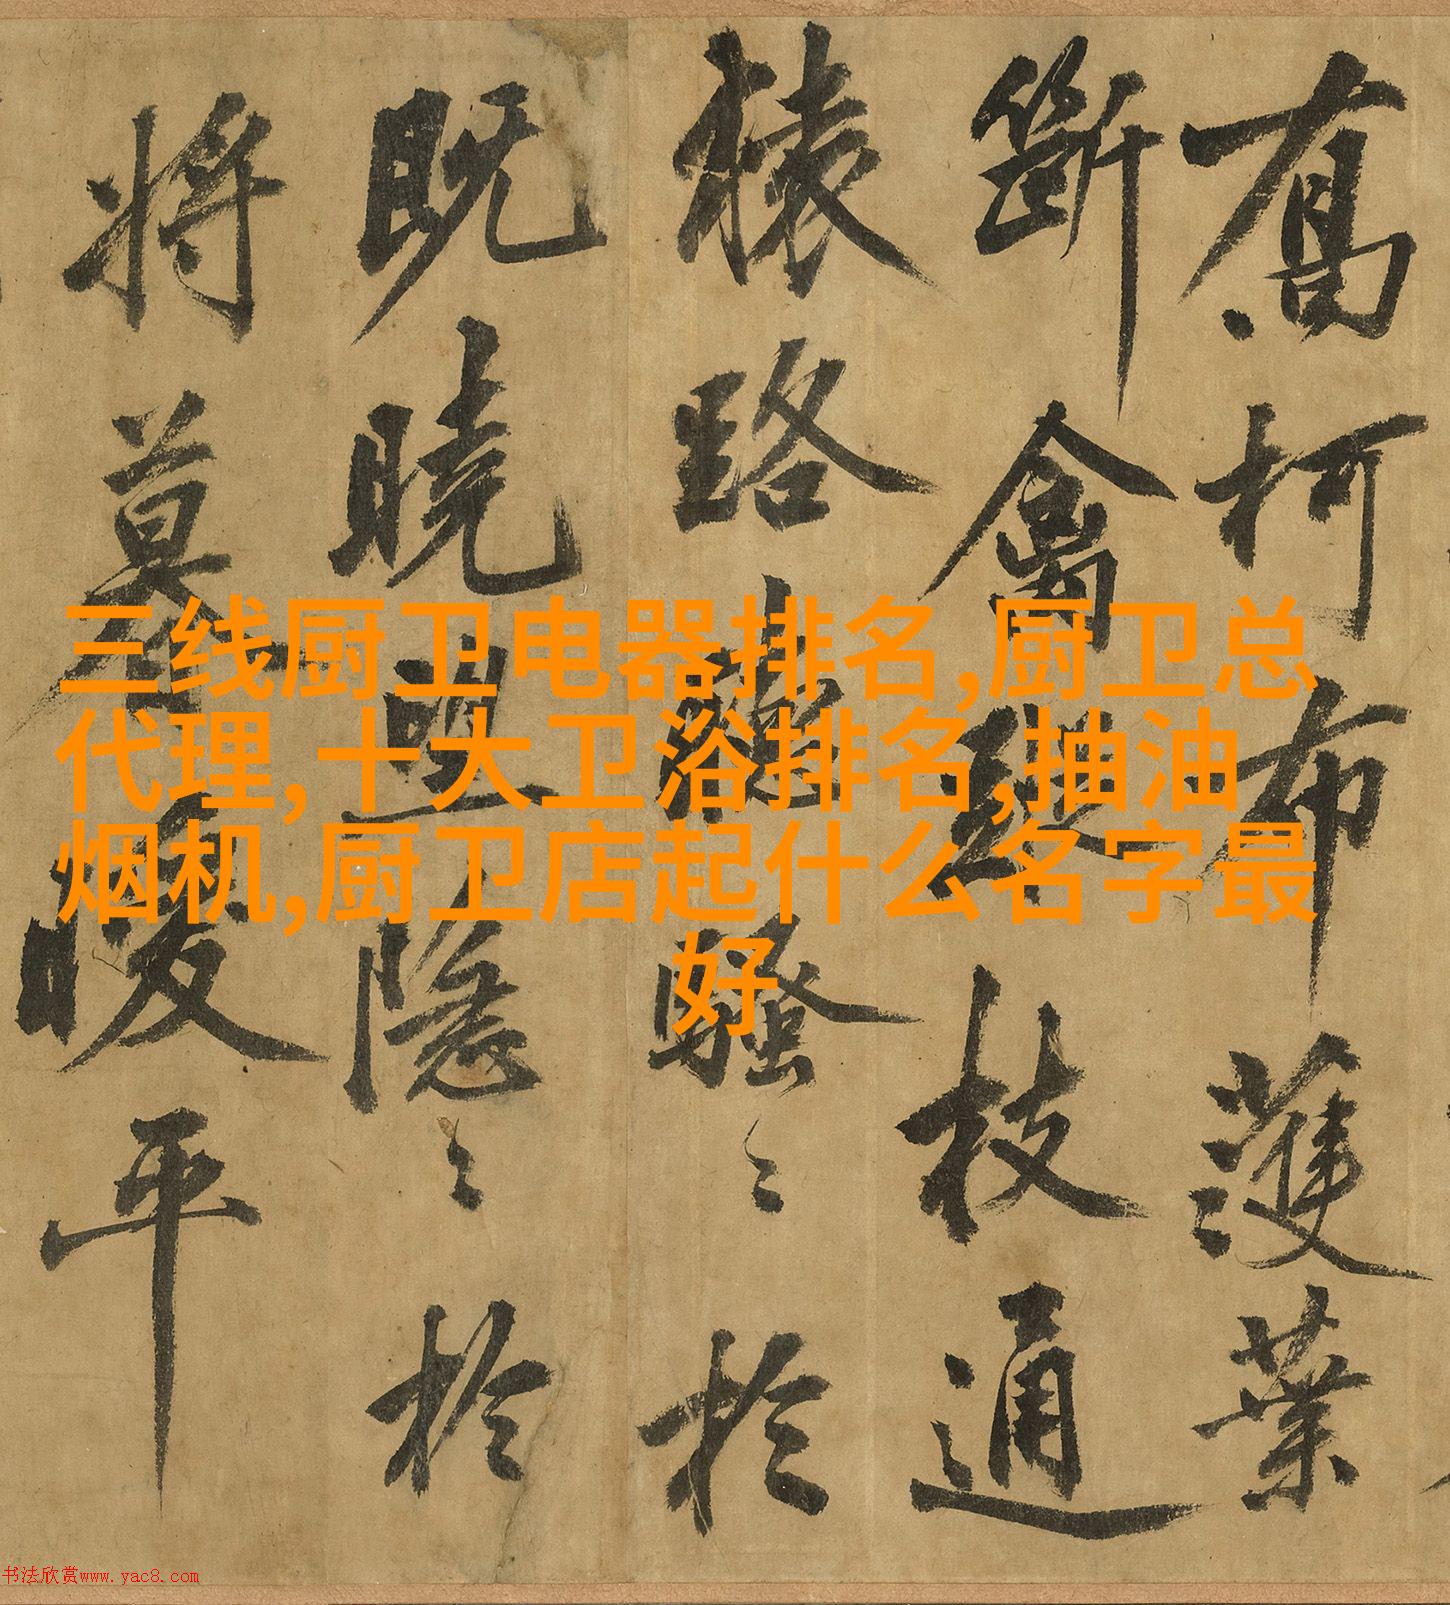 喬柯布濩葉
斷禽枝通
猿路聽騷〻於
既曉望隱〻於
將暮暖平
三线厨卫电器排名,厨卫总
代理,十大卫浴排名,抽油
烟机,厨卫店起什么名字最
好
书法欣赏www.yac8.com